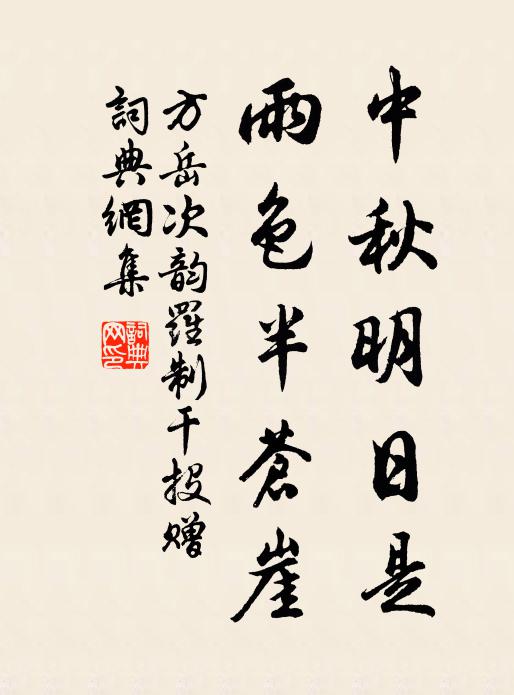 中秋明日是
雨色半蒼崖
方岳次韵羅制干投贈
詞典網集
詞典網印